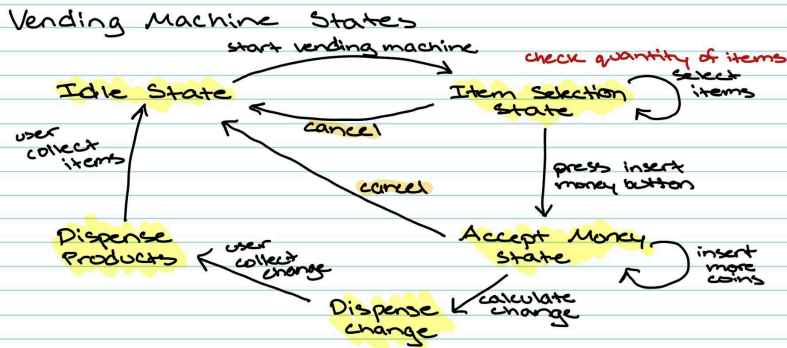 Vending Machine States
start vending machine
check quantity of items
Idle State
Item Selection
State
select
items
cancel
user
collect
items
press insert
money button
cancel
Dispense
Products
user
collect
change
Accept Money
State
insert
more
coins
Dispense
Change
calculate
change